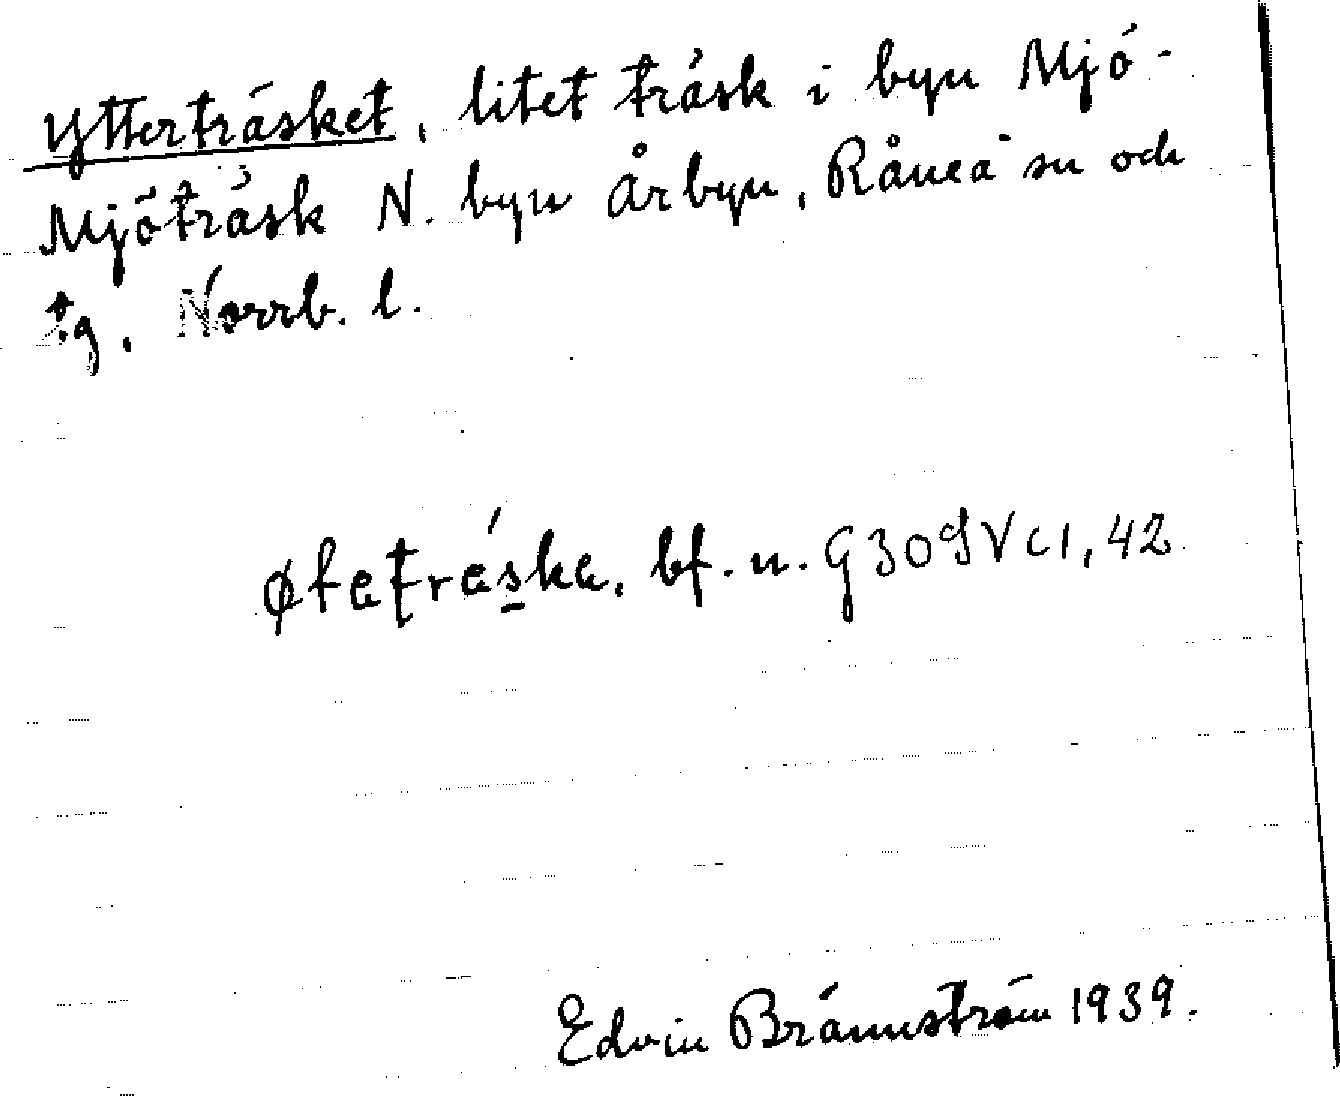 Ytterträsket, litet träsk i byn Mjö-
Mjöträsk N. byn Årbyn, Råneå sn och
tg, Norrb. l.
bf. n. G309 V c1, 42
Edvin Brännström 1939.